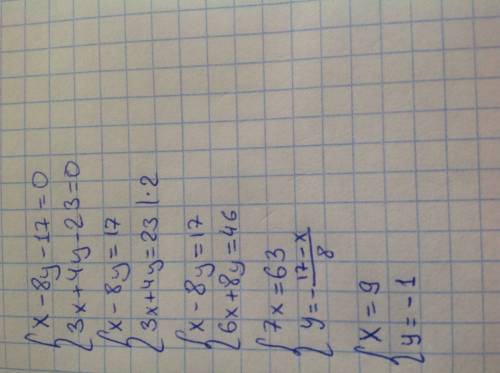 {x-8y-17=0
{3x+4y-23=0
{x-8y=17
{3x+4y=23 |·2
{x-8y=17
{6x+8y=46
{7x=63
{y=-\frac{17-x}{8}
{x=9
{y=-1